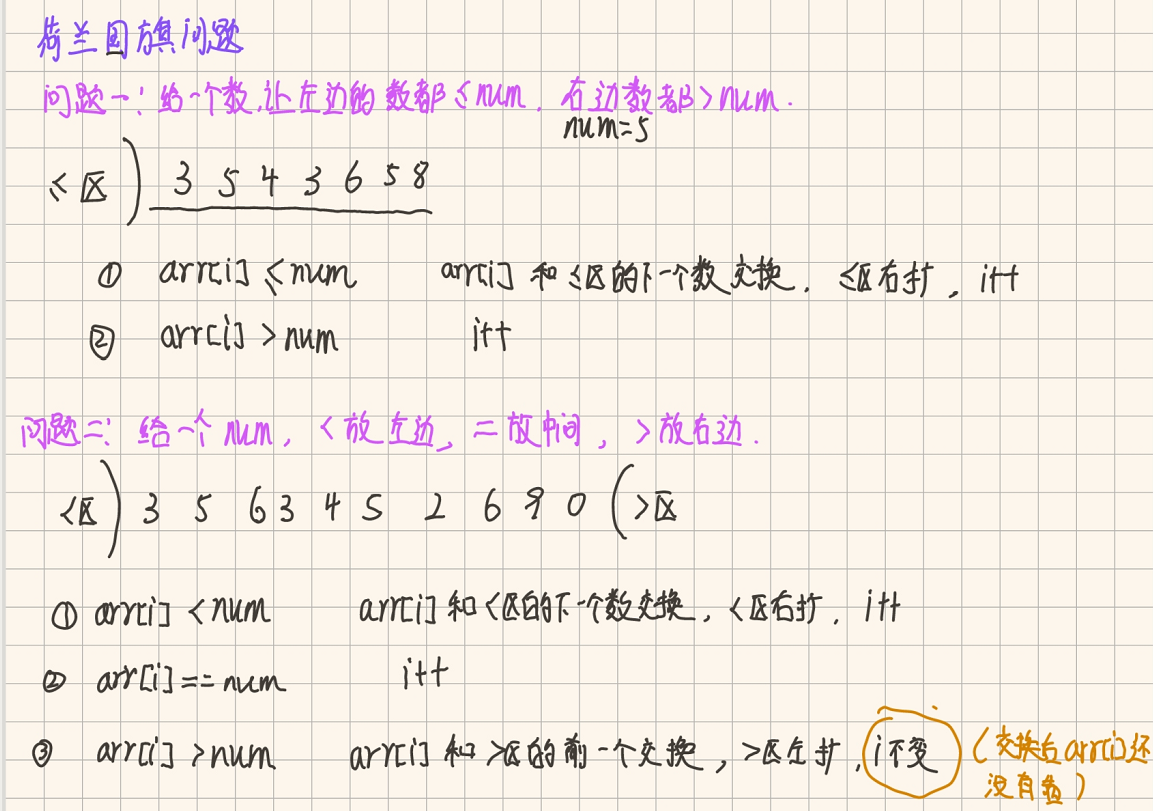 荷兰国旗问题
问题一：给一个数,让左边的数都≤num，右边数都>num.
num=5
≤区) 3 5 4 3 6 5 8
① arr[i]≤num arr[i]和≤区的下一个数交换，≤区右扩，i++
② arr[i]>num i++
问题二：给一个num，<放左边，=放中间，>放右边.
<区) 3 5 6 3 4 5 2 6 9 0 (>区
① arr[i]<num arr[i]和<区的下一个数交换，<区右扩，i++
② arr[i]==num i++
③ arr[i]>num arr[i]和>区的前一个交换，>区左扩，i不变 (交换后arr[i]还
没有看)